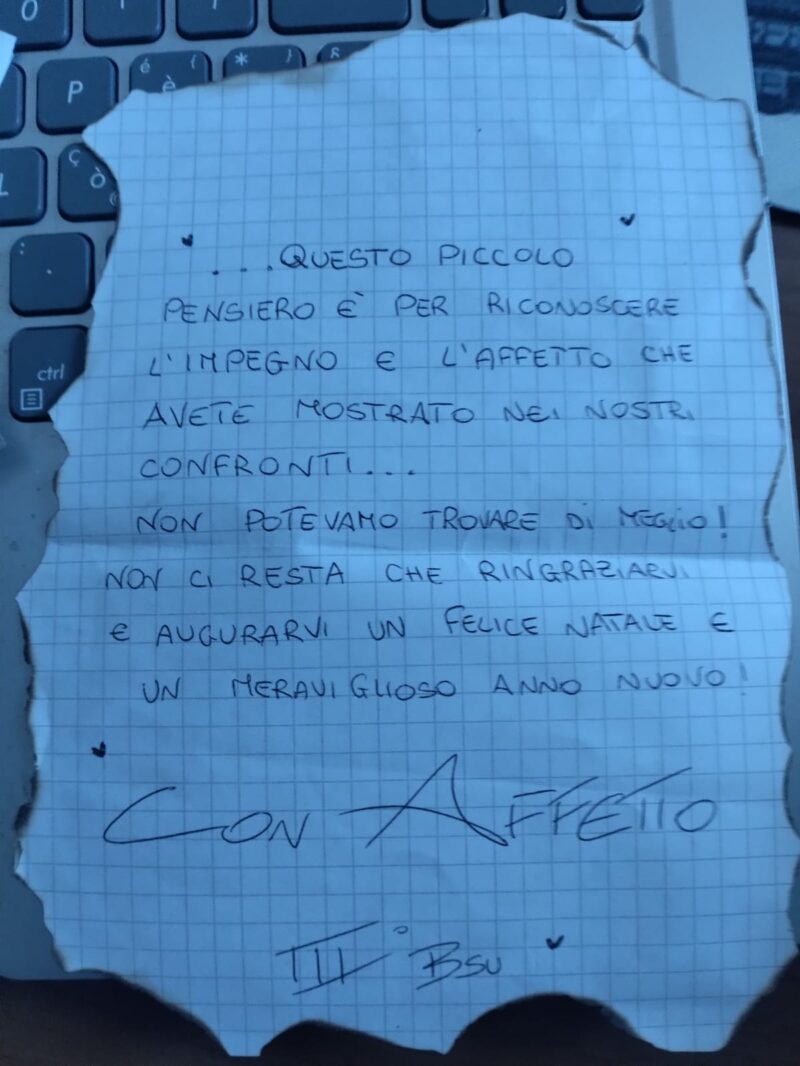 O
P
é {
è
* }
ç
ò
@
L
:
.
ctrl
...QUESTO PICCOLO
PENSIERO È PER RICONOSCERE
L'IMPEGNO E L'AFFETTO CHE
AVETE MOSTRATO NEI NOSTRI
CONFRONTI...
NON POTEVAMO TROVARE DI MEGLIO!
NON CI RESTA CHE RINGRAZIARVI
E AUGURARVI UN FELICE NATALE E
UN MERAVIGLIOSO ANNO NUOVO!
CON AFFETTO
III° BSU